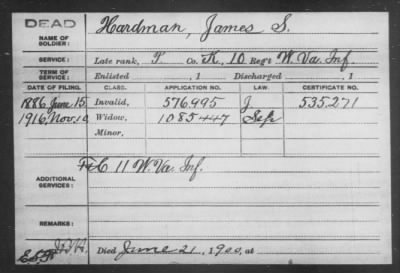 DEAD
NAME OF SOLDIER: Hardman, James S.
SERVICE: Late rank, P. Co. K, 10 Reg't W. Va. Inf.
TERM OF SERVICE: Enlisted , 1 Discharged , 1
DATE OF FILING. CLASS. APPLICATION NO. LAW. CERTIFICATE NO.
1886 June 15 Invalid, 576995 J 535.271
1916, Nov. 10 Widow, 1085447 Sep
Minor,
ADDITIONAL SERVICES: C 11 W. Va. Inf.
REMARKS:
Died June 21, 1900, at